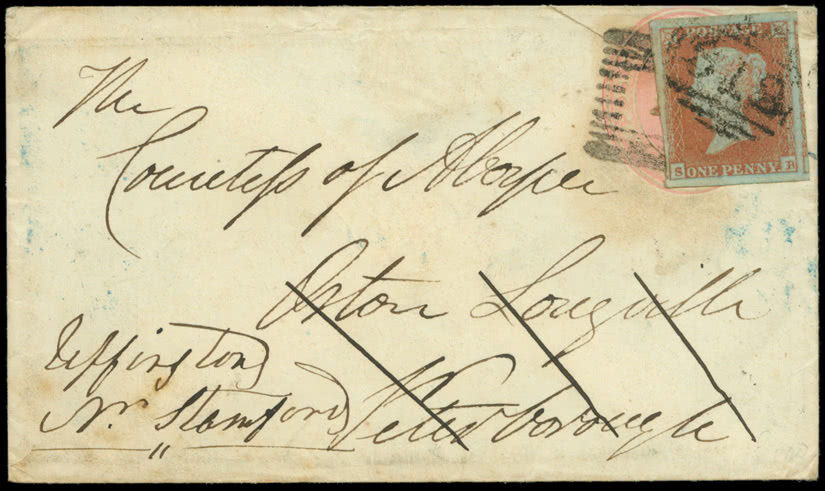 POSTAGE
S ONE PENNY. B
The
Countess of
Orton Longville
Peterborough
Uffington
Nr. Stamford